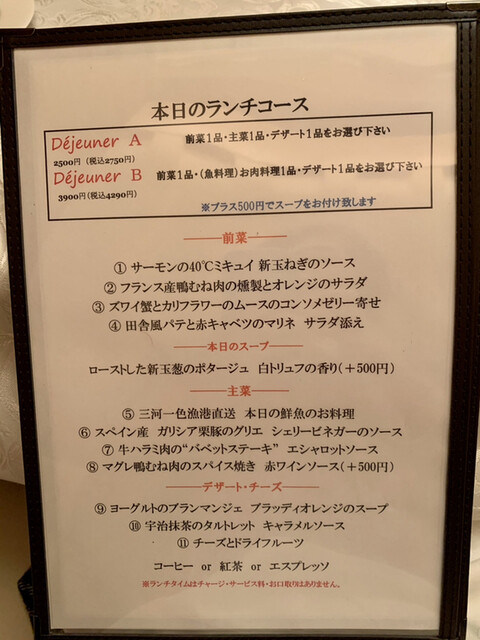 本日のランチコース
Déjeuner A 前菜1品・主菜1品・デザート1品をお選び下さい
2500円（税込2750円）
Déjeuner B 前菜1品・（魚料理）お肉料理1品・デザート1品をお選び下さい
3900円(税込4290円)
※プラス500円でスープをお付け致します
前菜
① サーモンの40℃ミキュイ 新玉ねぎのソース
② フランス産鴨むね肉の燻製とオレンジのサラダ
③ ズワイ蟹とカリフラワーのムースのコンソメゼリー寄せ
④ 田舎風パテと赤キャベツのマリネ サラダ添え
本日のスープ
ローストした新玉葱のポタージュ 白トリュフの香り(＋500円)
主菜
⑤ 三河一色漁港直送 本日の鮮魚のお料理
⑥ スペイン産 ガリシア栗豚のグリエ シェリービネガーのソース
⑦ 牛ハラミ肉の“バベットステーキ” エシャロットソース
⑧ マグレ鴨むね肉のスパイス焼き 赤ワインソース(＋500円)
デザート・チーズ
⑨ ヨーグルトのブランマンジェ ブラッディオレンジのスープ
⑩ 宇治抹茶のタルトレット キャラメルソース
⑪ チーズとドライフルーツ
コーヒー or 紅茶 or エスプレッソ
※ランチタイムはチャージ・サービス料・お口取りはありません。